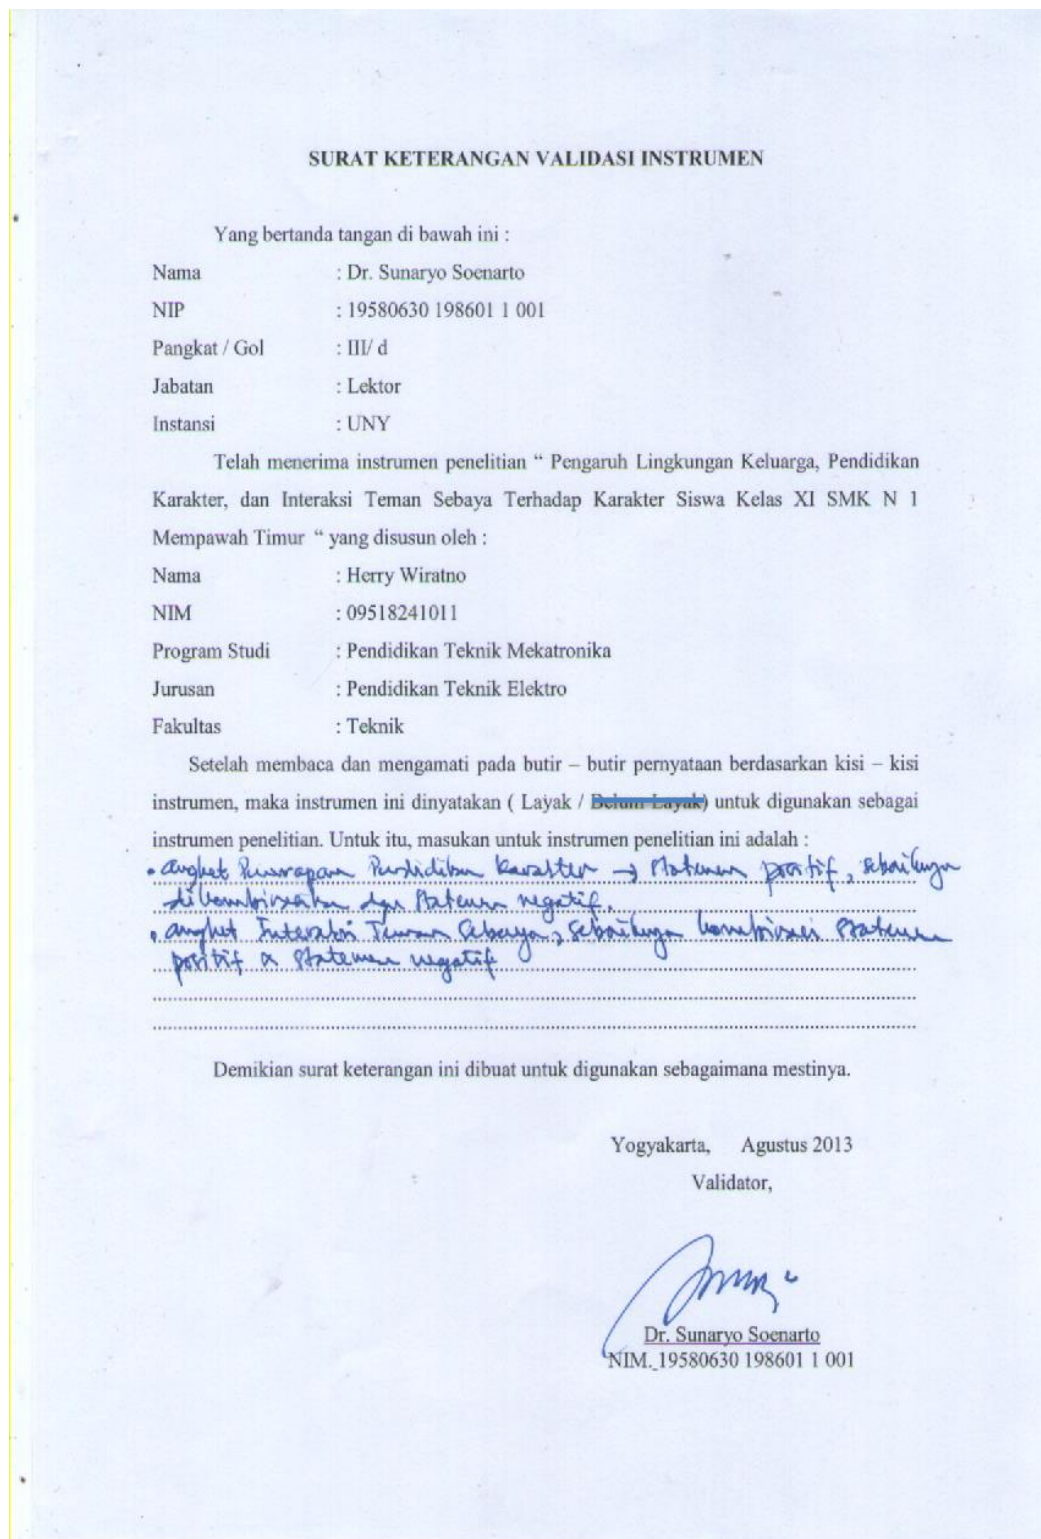 SURAT KETERANGAN VALIDASI INSTRUMEN
Yang bertanda tangan di bawah ini :
Nama : Dr. Sunaryo Soenarto
NIP : 19580630 198601 1 001
Pangkat / Gol : III/ d
Jabatan : Lektor
Instansi : UNY
Telah menerima instrumen penelitian “ Pengaruh Lingkungan Keluarga, Pendidikan
Karakter, dan Interaksi Teman Sebaya Terhadap Karakter Siswa Kelas XI SMK N 1
Mempawah Timur “ yang disusun oleh :
Nama : Herry Wiratno
NIM : 09518241011
Program Studi : Pendidikan Teknik Mekatronika
Jurusan : Pendidikan Teknik Elektro
Fakultas : Teknik
Setelah membaca dan mengamati pada butir – butir pernyataan berdasarkan kisi – kisi
instrumen, maka instrumen ini dinyatakan ( Layak / Belum Layak) untuk digunakan sebagai
instrumen penelitian. Untuk itu, masukan untuk instrumen penelitian ini adalah :
• angket Penerapan Pendidikan Karakter → Statemen positif, sebaiknya
dikombinasikan dgn Statemen negatif.
• angket Interaksi Teman Sebaya, sebaiknya kombinasi Statemen
positif & Statemen negatif
Demikian surat keterangan ini dibuat untuk digunakan sebagaimana mestinya.
Yogyakarta, Agustus 2013
Validator,
Dr. Sunaryo Soenarto
NIM. 19580630 198601 1 001